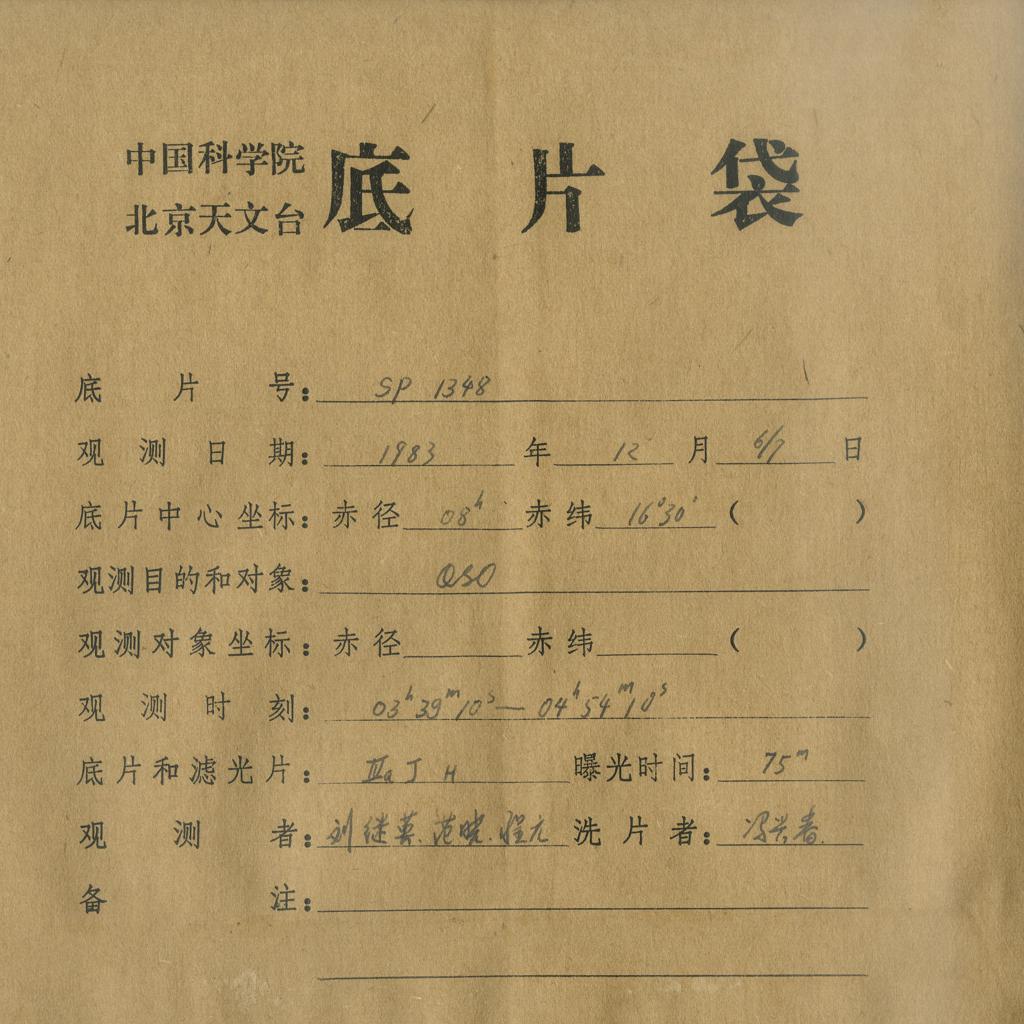 中国科学院
北京天文台
底片袋
底片号: SP 1348
观测日期: 1983 年 12 月 6/7 日
底片中心坐标: 赤径 08ʰ 赤纬 16°30′ ( )
观测目的和对象: QSO
观测对象坐标: 赤径 赤纬 ( )
观测时刻: 03ʰ39ᵐ10ˢ — 04ʰ54ᵐ10ˢ
底片和滤光片: ⅢaJ H 曝光时间: 75ᵐ
观测者: 刘继英. 范晓. 程元 洗片者: 冯兴春.
备注: